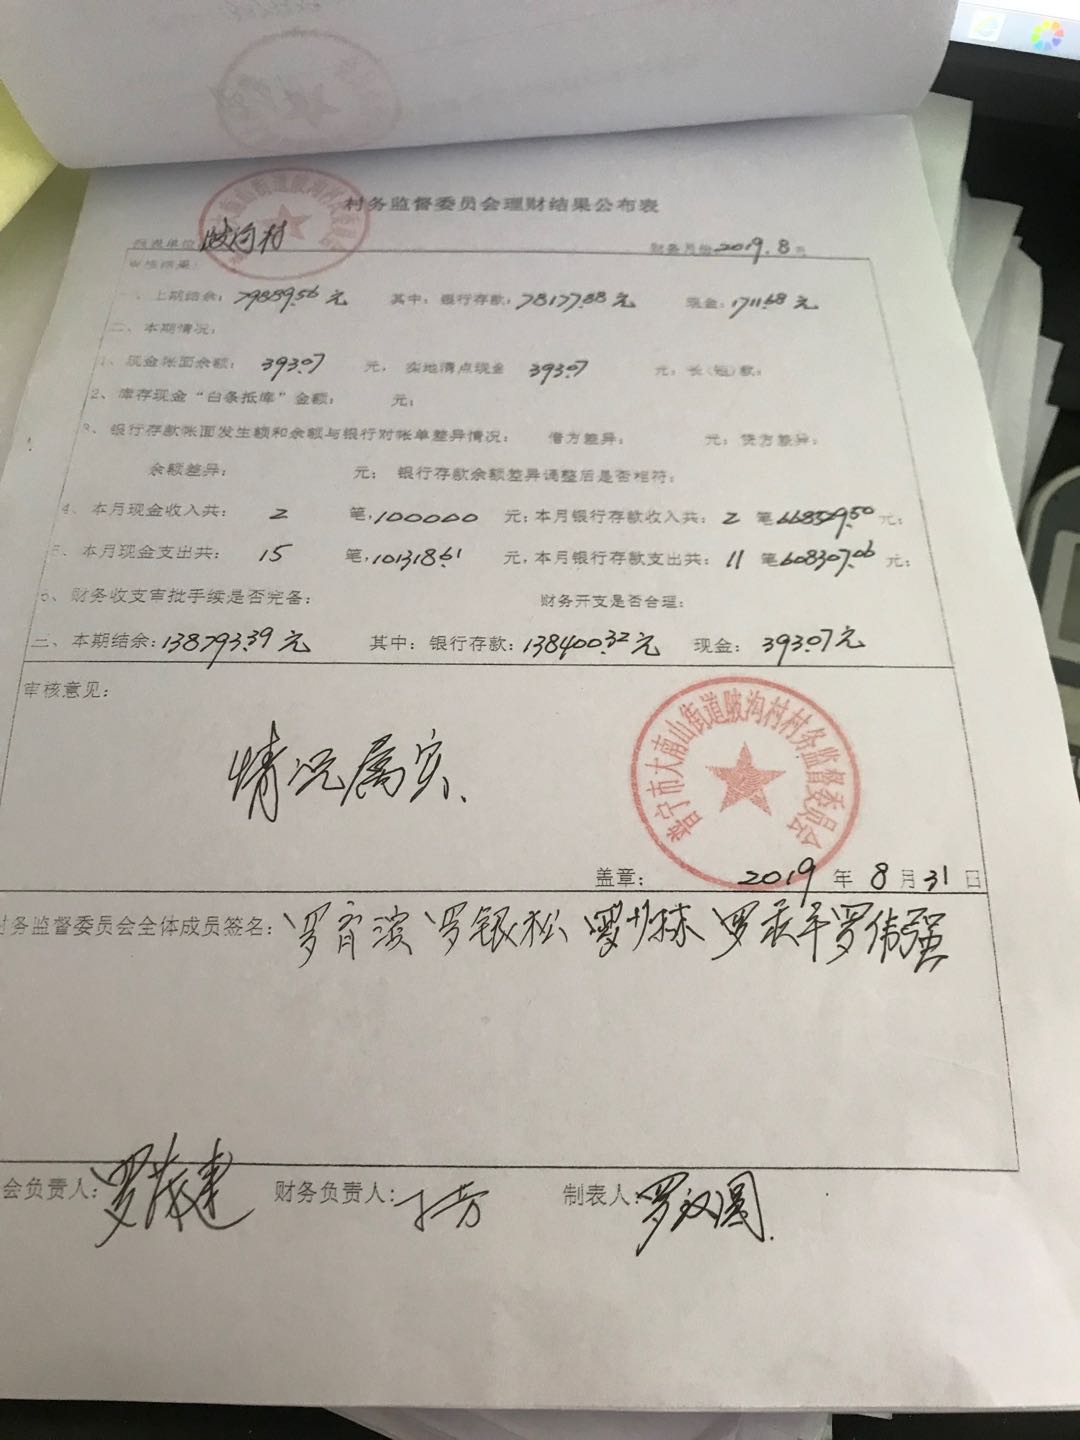 村务监督委员会理财结果公布表
单位 陂沟村 财务月份2019.8月
审核结果：
一、上期结余：79889.56元 其中：银行存款：78177.88元 现金：1711.68元
二、本期情况：
1、现金帐面余额：393.07元，实地清点现金 393.07 元；长(短)款：
2、库存现金“白条抵库”金额： 元；
3、银行存款帐面发生额和余额与银行对帐单差异情况： 借方差异： 元；贷方差异：
余额差异： 元；银行存款余额差异调整后是否相符：
4、本月现金收入共：2笔，100000元；本月银行存款收入共：2笔668529.50元；
5、本月现金支出共：15笔，101318.61元，本月银行存款支出共：11笔608307.06元；
6、财务收支审批手续是否完备： 财务开支是否合理：
三、本期结余：138793.39元 其中：银行存款：138400.32元 现金：393.07元
审核意见：
情况属实、
普宁市大南山街道陂沟村村务监督委员会
盖章： 2019年8月31日
村务监督委员会全体成员签名：罗 罗银松 罗 罗 罗伟强
会负责人：罗 财务负责人： 制表人：罗汉国